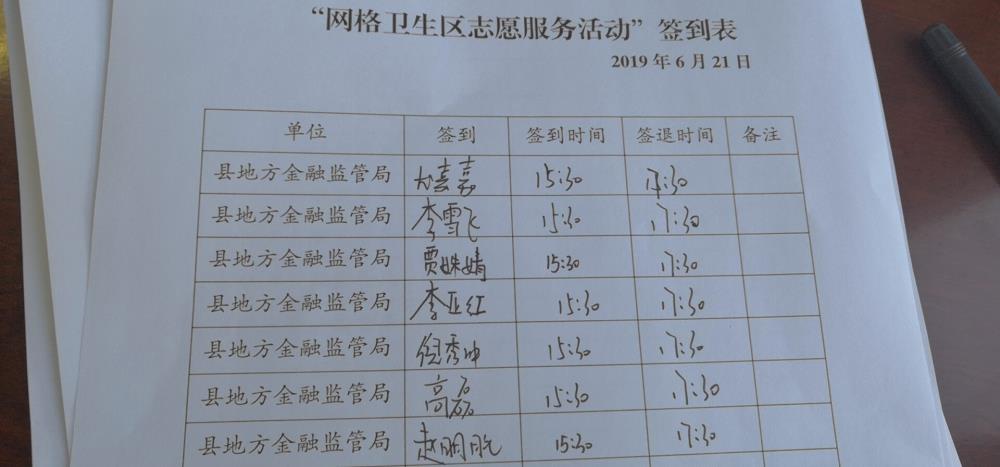 “网格卫生区志愿服务活动”签到表
2019年6月21日
单位 签到 签到时间 签退时间 备注
县地方金融监管局 15:30 17:30
县地方金融监管局 李雪飞 15:30 17:30
县地方金融监管局 贾姝婧 15:30 17:30
县地方金融监管局 李亚红 15:30 17:30
县地方金融监管局 倪秀坤 15:30 17:30
县地方金融监管局 高磊 15:30 17:30
县地方金融监管局 赵明 15:30 17:30